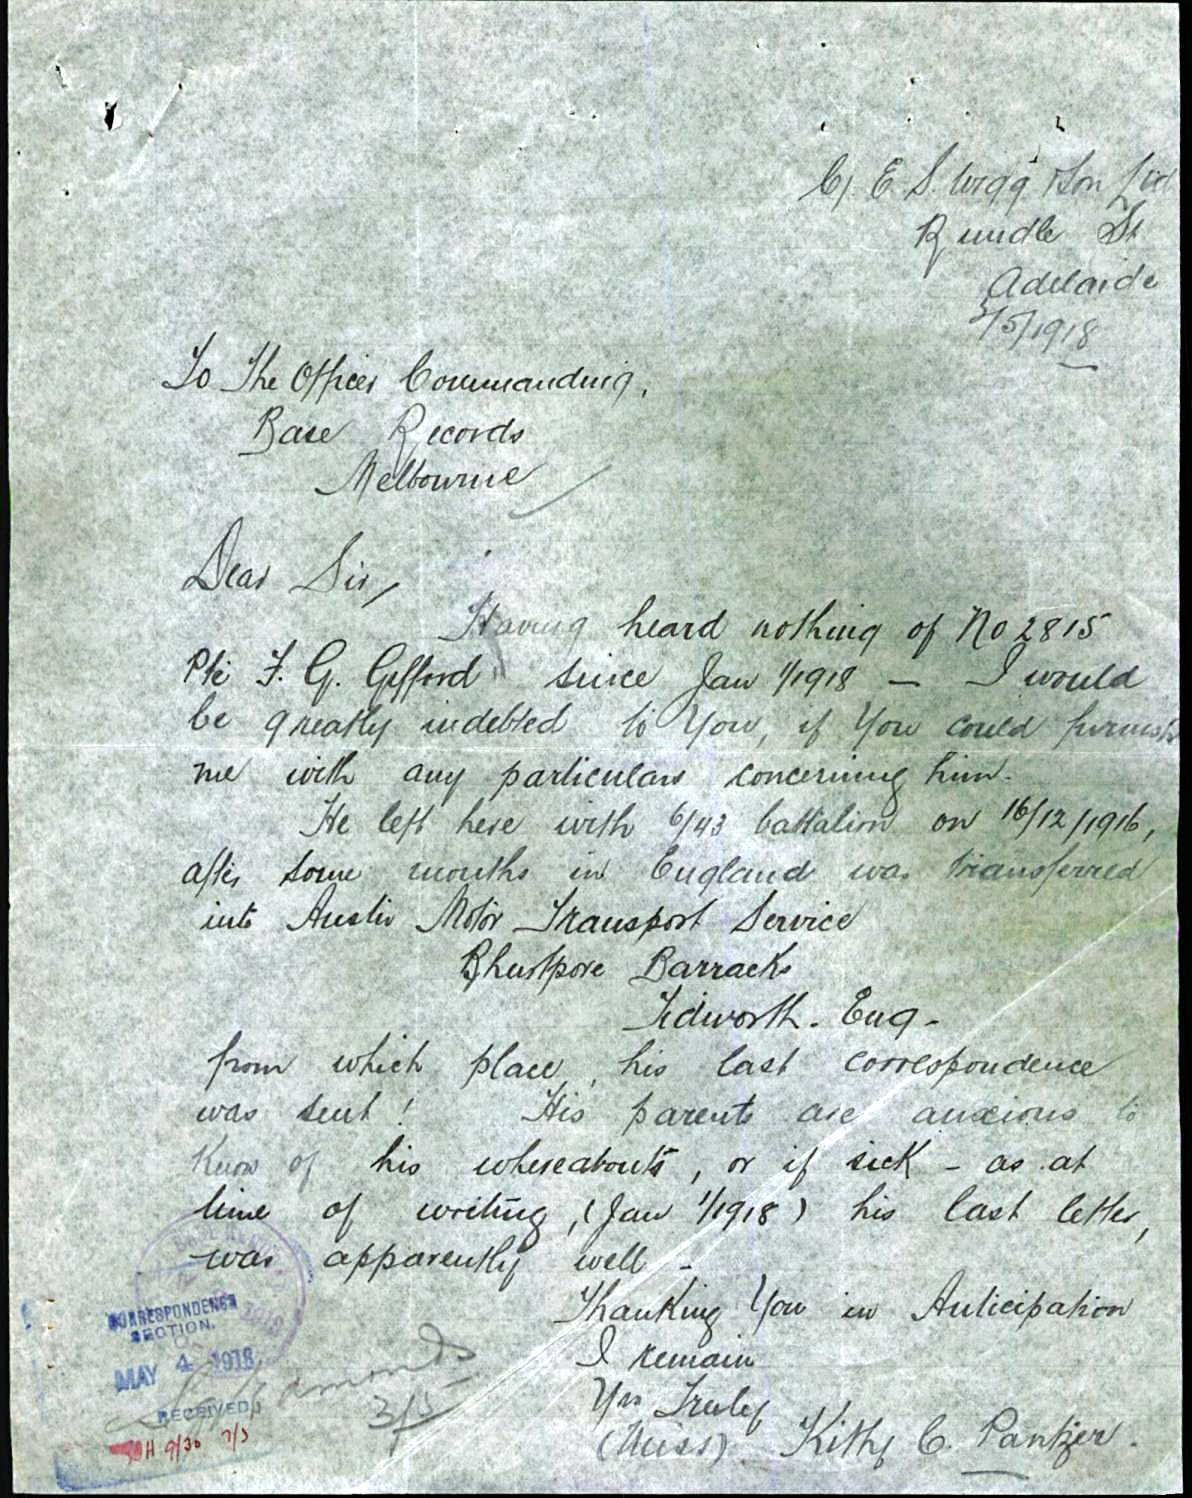 C/. E. S. Wigg & Son Ltd
Rundle St
Adelaide
2/5/1918
To The Officer Commanding,
Base Records
Melbourne
Dear Sir,
Having heard nothing of No 2815
Pte F. G. Gifford since Jan 1/1918 — I would
be greatly indebted to You, if You could furnish
me with any particulars concerning him.
He left here with 6/43 battalion on 16/12/1916,
after some months in England was transferred
into Austln Motor Transport Service
Bhurtpore Barracks
Tidworth. Eng -
from which place, his last correspondence
was sent! His parents are anxious to
know of his whereabouts, or if sick - as at
time of writing, (Jan 1/1918) his last letter,
was apparently well -
Thanking You in Anticipation
I remain
Yrs Truly
(Miss) Kitty C. Pantzer.
CORRESPONDENCE
SECTION.
MAY 4 1918
RECEIVED
3/5
9/30 7/5